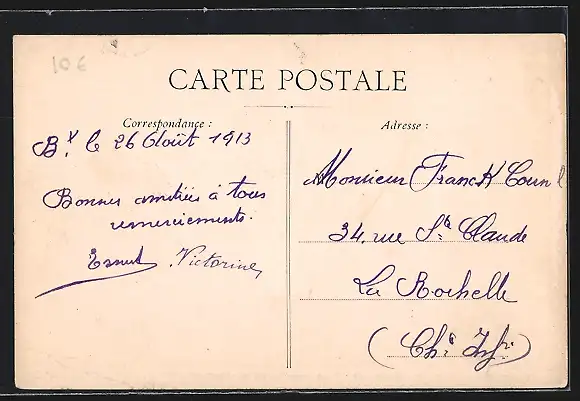 10€
CARTE POSTALE
Correspondance :
Bx. le 26 Août 1913
Bonnes amitiés à tous
remerciements.
Ernest Victorine
Adresse :
Monsieur Franck
34, rue Ste Claude
La Rochelle
(Chte Infre)